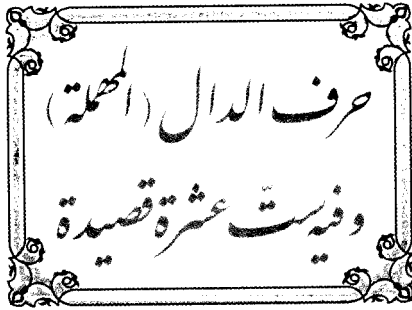 حرف الدال (المهملة)
وفيه ستّ عشرة قصيدة